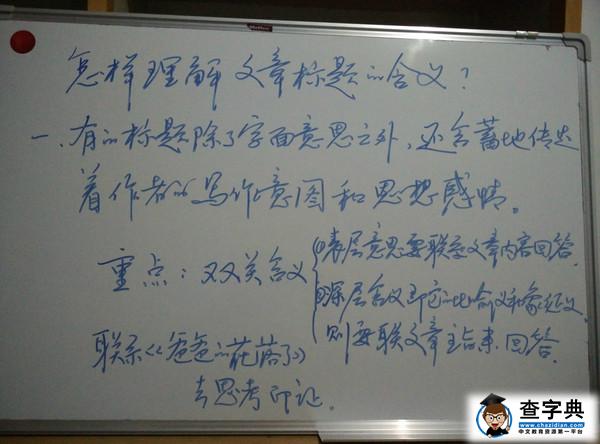 怎样理解文章标题的含义?
一、有的标题除了字面意思之外,还含蓄地传达
着作者的写作意图和思想感情。
重点:双关含义
①表层意思要联系文章内容回答。
②深层含义即它的比喻义和象征义。
则要联文章主旨来回答。
联系《爸爸的花落了》
去思考印证。
查字典
www.chazidian.com
中文教育资源第一平台